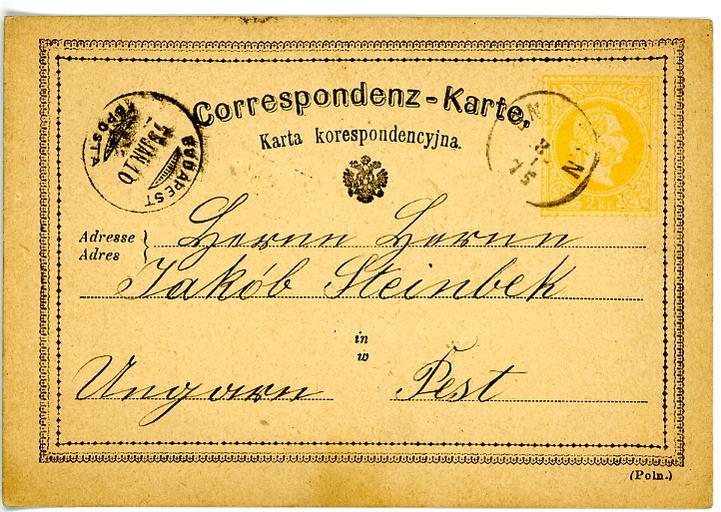 Correspondenz-Karte,
Karta korespondencyjna.
BUDAPEST
2 kr.
Adresse
Adres
Herrn Herrn
Jakób Steinbek
in
w
Ungarn Pest
(Poln.)